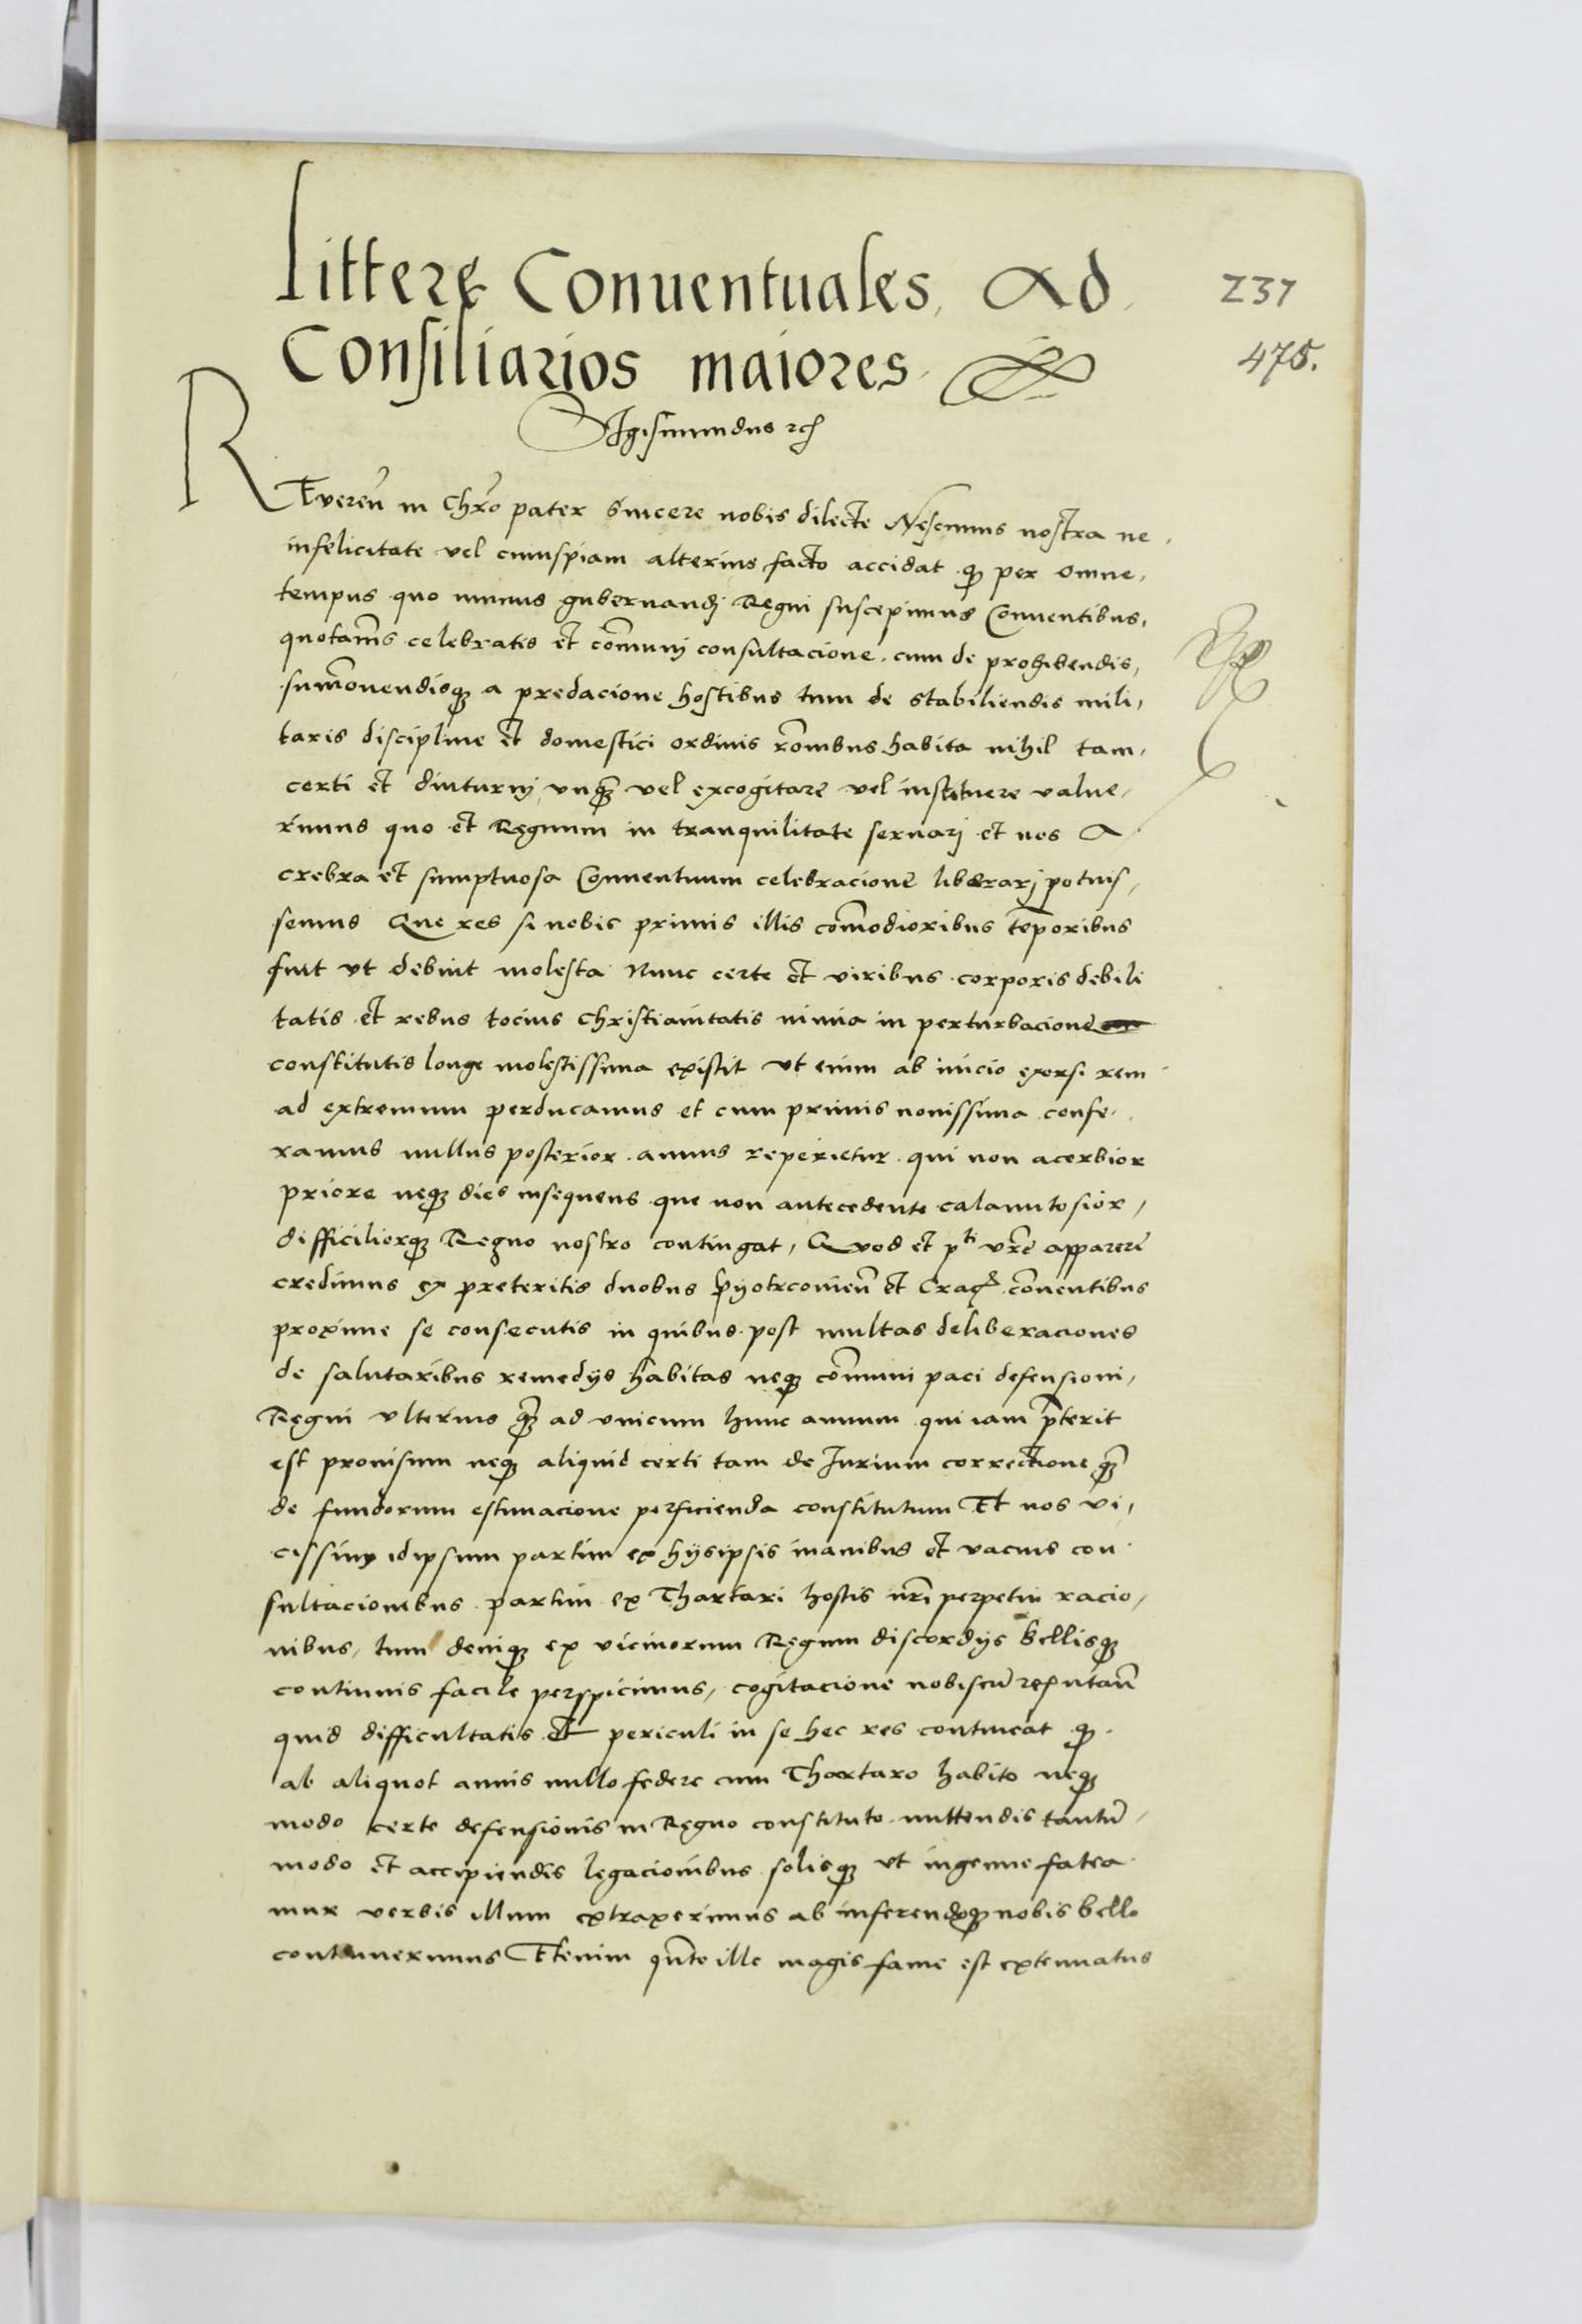 Litterę Conuentuales, Ad
237
Consiliarios maiores
475.
Sigismundus rex
Reueren̄ in Chr̄o pater Sincere nobis dilecte Nescimus nostra ne
infelicitate vel cuiuspiam alterius facto accidat qͥ per omne,
tempus quo munus gubernandj Regni suscepimus Conuentibus,
quotannis celebratis et com̄unj consultacione, cum de prohibendis,
sum̄ouendisqꝫ a predacione hostibus tum de stabiliendis mili,
taris discipline et domestici ordinis rōnibus habita nihil tam,
certi et diuturnj vnqꝫ vel excogitare vel instituere value,
rimus quo et Regnum in tranquilitate seruarj et nos A
crebra et sumptuosa Conuentuum celebracione liberarj potuis,
semus Que res si nobis primis illis com̄odioribus tēporibus
fuit vt debuit molesta Nunc certe et viribus corporis debili
tatis et rebus tocius christianitatis nimia in perturbacione
constitutis longe molestissima existit vt enim ab inicio exorsi rem
ad extremum perducamus et cum primis nouissima confe,
ramus nullus posterior annus reperietur qui non acerbior
priore neqꝫ dies insequens que non antecedente calamitosior,
difficiliorqꝫ Regno nostro contingat, Quod et p̄ti vr̄e apparere
credimus ex preteritis duobus Pyotrcouien̄ et Crac̄ conuentibus
proxime se consecutis in quibus post multas deliberaciones
de salutaribus remedijs habitas neqꝫ com̄uni paci defensioni,
Regni vlterius qꝫ ad vnicum hunc annum qui iam p̄terit
est prouisum neqꝫ aliquid certi tam de Jurium correctione qꝫ
de fundorum estimacione perficienda constitutum Et nos vi,
cissim idipsum partim ex hijsipsis inanibus et vacuis con
sultacionibus partim ex Thartari hostis nr̄i perpetui racio,
nibus, tum deniqꝫ ex vicinorum Regum discordijs bellisqꝫ
continuis facile perspicimus, cogitacione nobiscū reputan̄
quid difficultatis et periculi in se hec res contineat qͥ
ab aliquot annis nullo federe cum Thartaro habito neqꝫ
modo certe defensionis in Regno constituto mittendis tantū,
modo et accipiendis legacionibus solisqꝫ vt ingenue fatea
mur verbis illum extraxerimus ab inferendoqꝫ nobis bello
continuerimus Etenim qūto ille magis fame est extenuatus